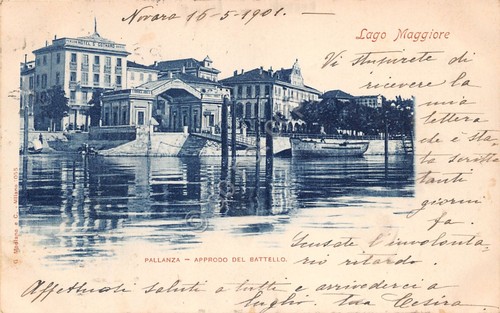 Novara 16-5-1901.
Lago Maggiore
HOTEL S. GOTTARDO
Vi stupirete di
ricevere la
mia
lettera
che è sta
ta scritta
tanti
giorni
fa.
Scusate l'involonta
rio ritardo.
PALLANZA - APPRODO DEL BATTELLO.
Affettuosi saluti a tutti e arrivederci a
luglio. tua Cesira